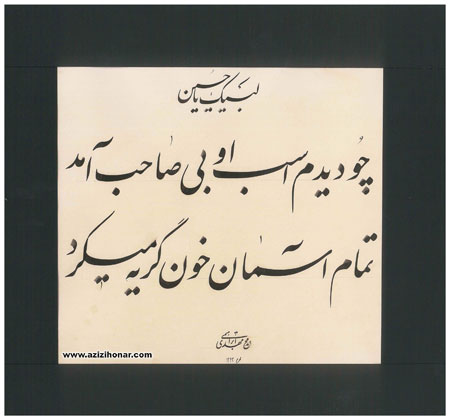 لبیک یا حسین
چو دیدم اسب او بی صاحب آمد
تمام آسمان خون گریه میکرد
www.azizihonar.com